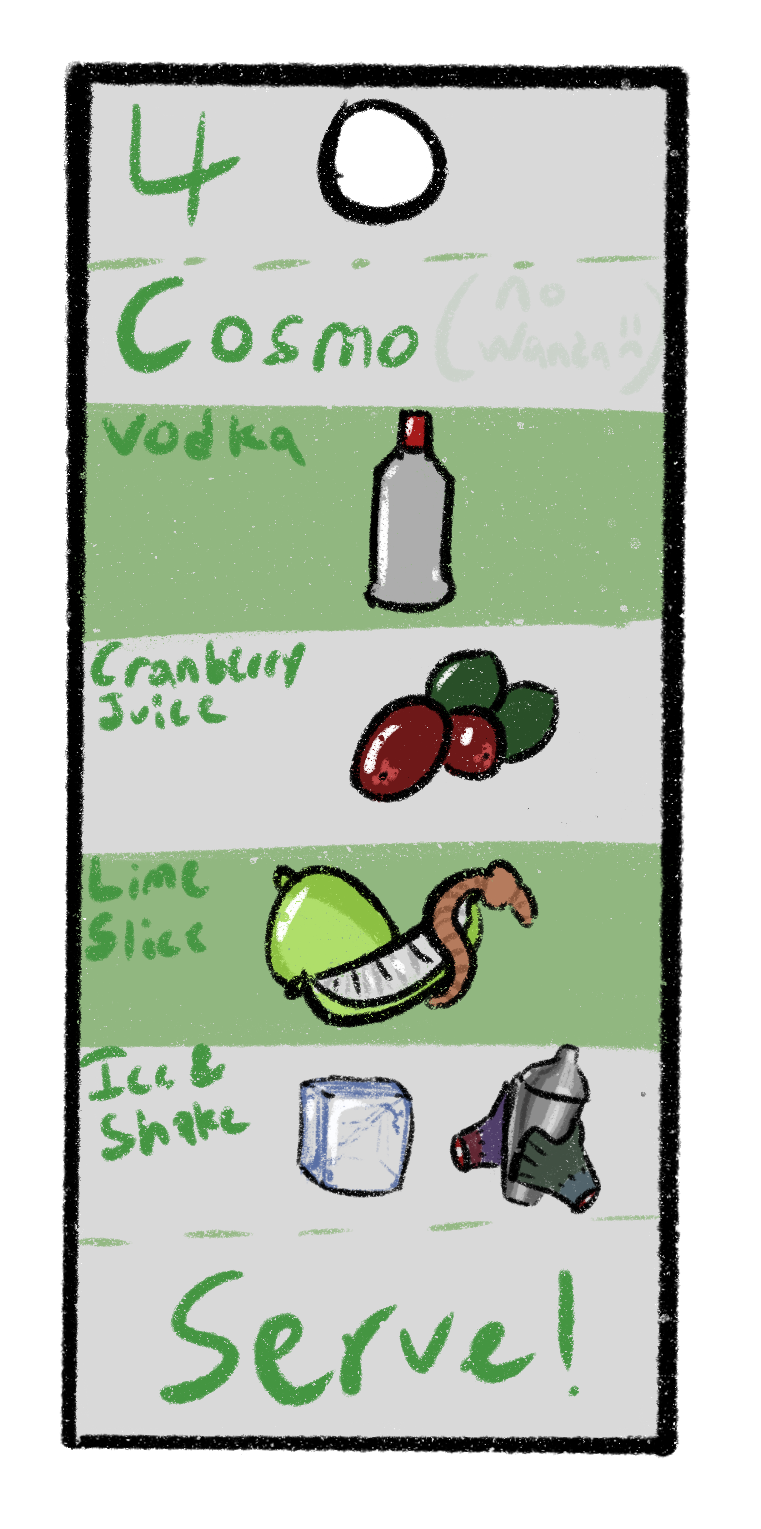 4
Cosmo (no
Wanda :()
Vodka
Cranberry
Juice
Lime
Slice
Ice &
Shake
Serve!